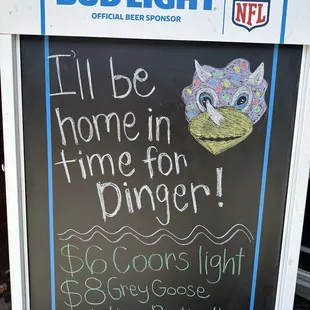 BUD LIGHT
OFFICIAL BEER SPONSOR
NFL
I'll be
home in
time for
Dinger!
$6 Coors light
$8 Grey Goose